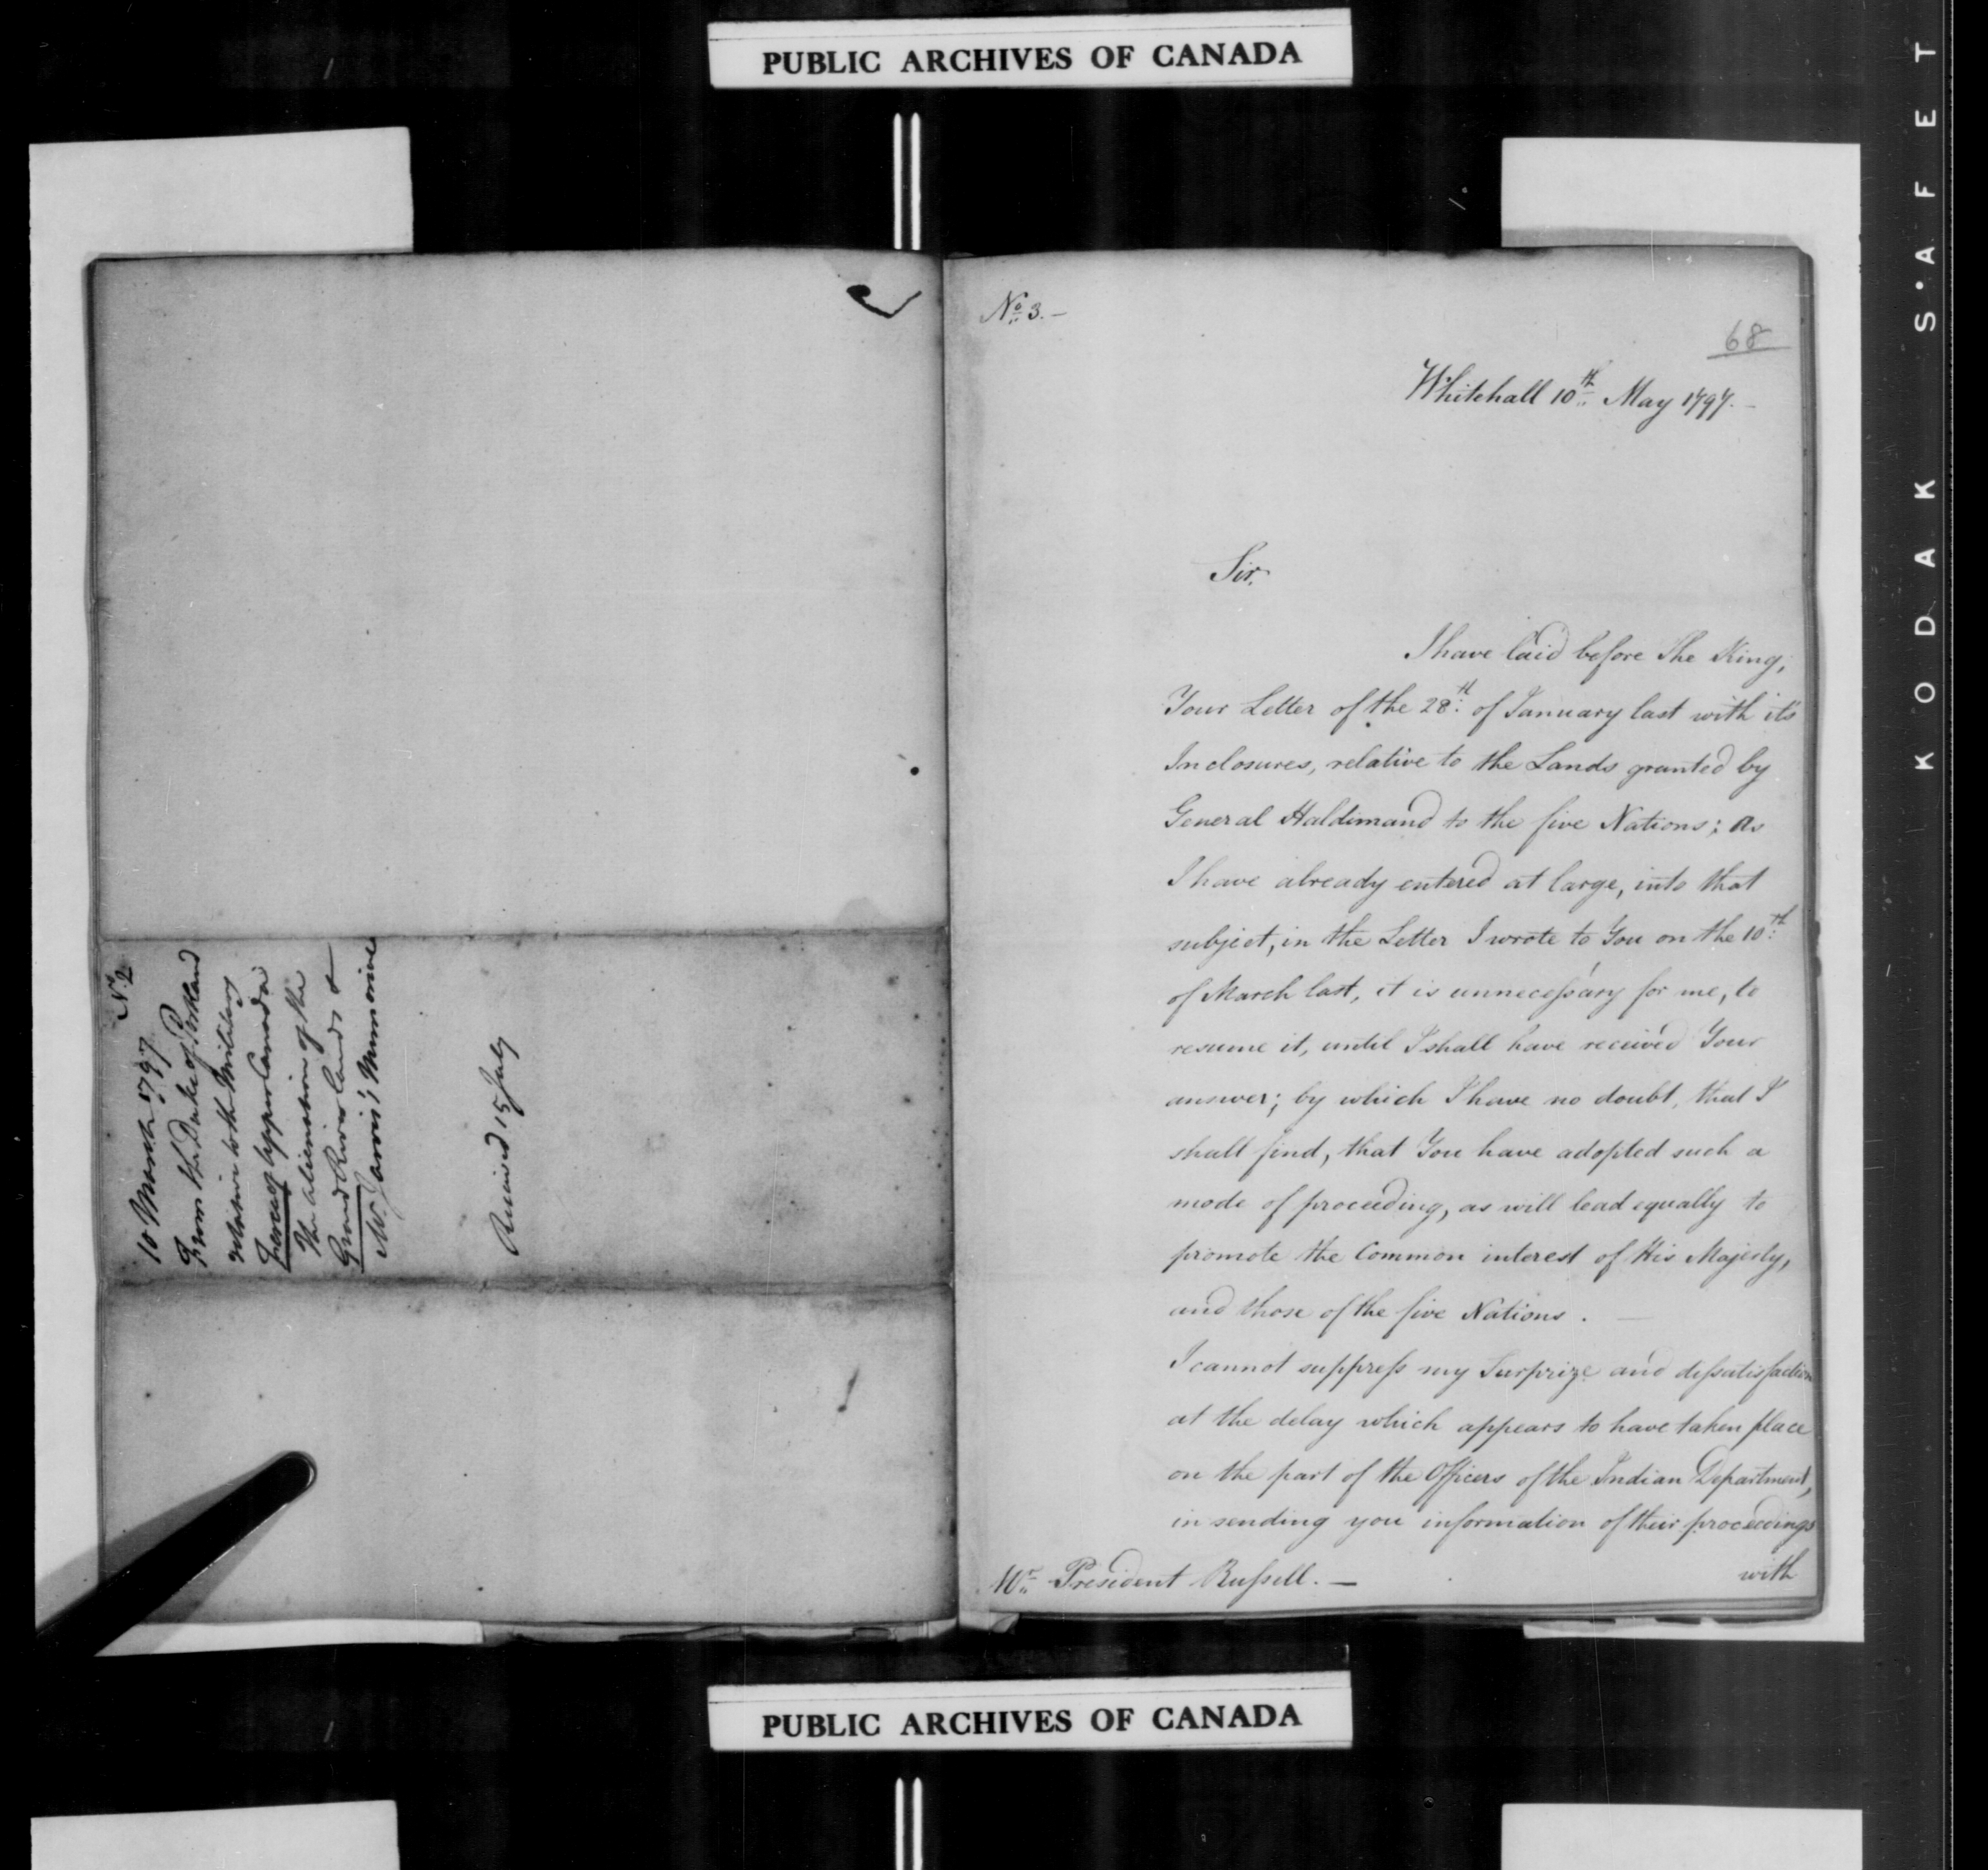 PUBLIC ARCHIVES OF CANADA
No. 2
10 March 1797
From the Duke of Portland
relative to the Military
Force of Upper Canada
The alienation of the
Grand River Lands &
Mr. Jarvis's
Received 15 July
No. 3. —
68
Whitehall 10th May 1797. —
Sir,
I have laid before The King,
Your Letter of the 28th of January last with it's
Inclosures, relative to the Lands granted by
General Haldimand to the five Nations; As
I have already entered at large, into that
subject, in the Letter I wrote to You on the 10th
of March last, it is unnecessary for me, to
resume it, until I shall have received Your
answer; by which I have no doubt, that I
shall find, that You have adopted such a
mode of proceeding, as will lead equally to
promote the Common interest of His Majesty,
and those of the five Nations. —
I cannot suppress my Surprize and dissatisfaction
at the delay which appears to have taken place
on the part of the Officers of the Indian Department,
in sending you information of their proceedings
with
Mr. President Russell. —
PUBLIC ARCHIVES OF CANADA
KODAK SAFET